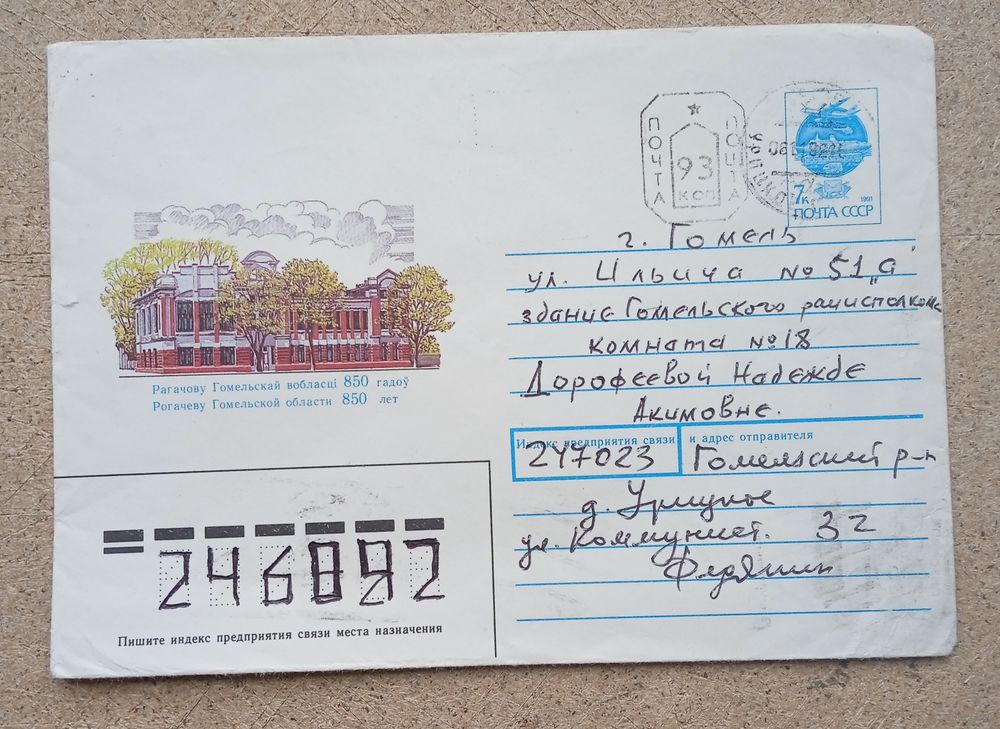 ПОЧТА
93
КОП
ПОЧТА
7к
1991
ПОЧТА СССР
г. Гомель
ул. Ильича № 51 „а"
здание Гомельского райисполкома
комната № 18
Дорофеевой Надежде
Акимовне.
Рагачову Гомельскай вобласці 850 гадоў
Рогачеву Гомельской области 850 лет
Индекс предприятия связи и адрес отправителя
247023 Гомельский р-н
д. Урицкое
ул. Коммунист. 32
246892
Пишите индекс предприятия связи места назначения